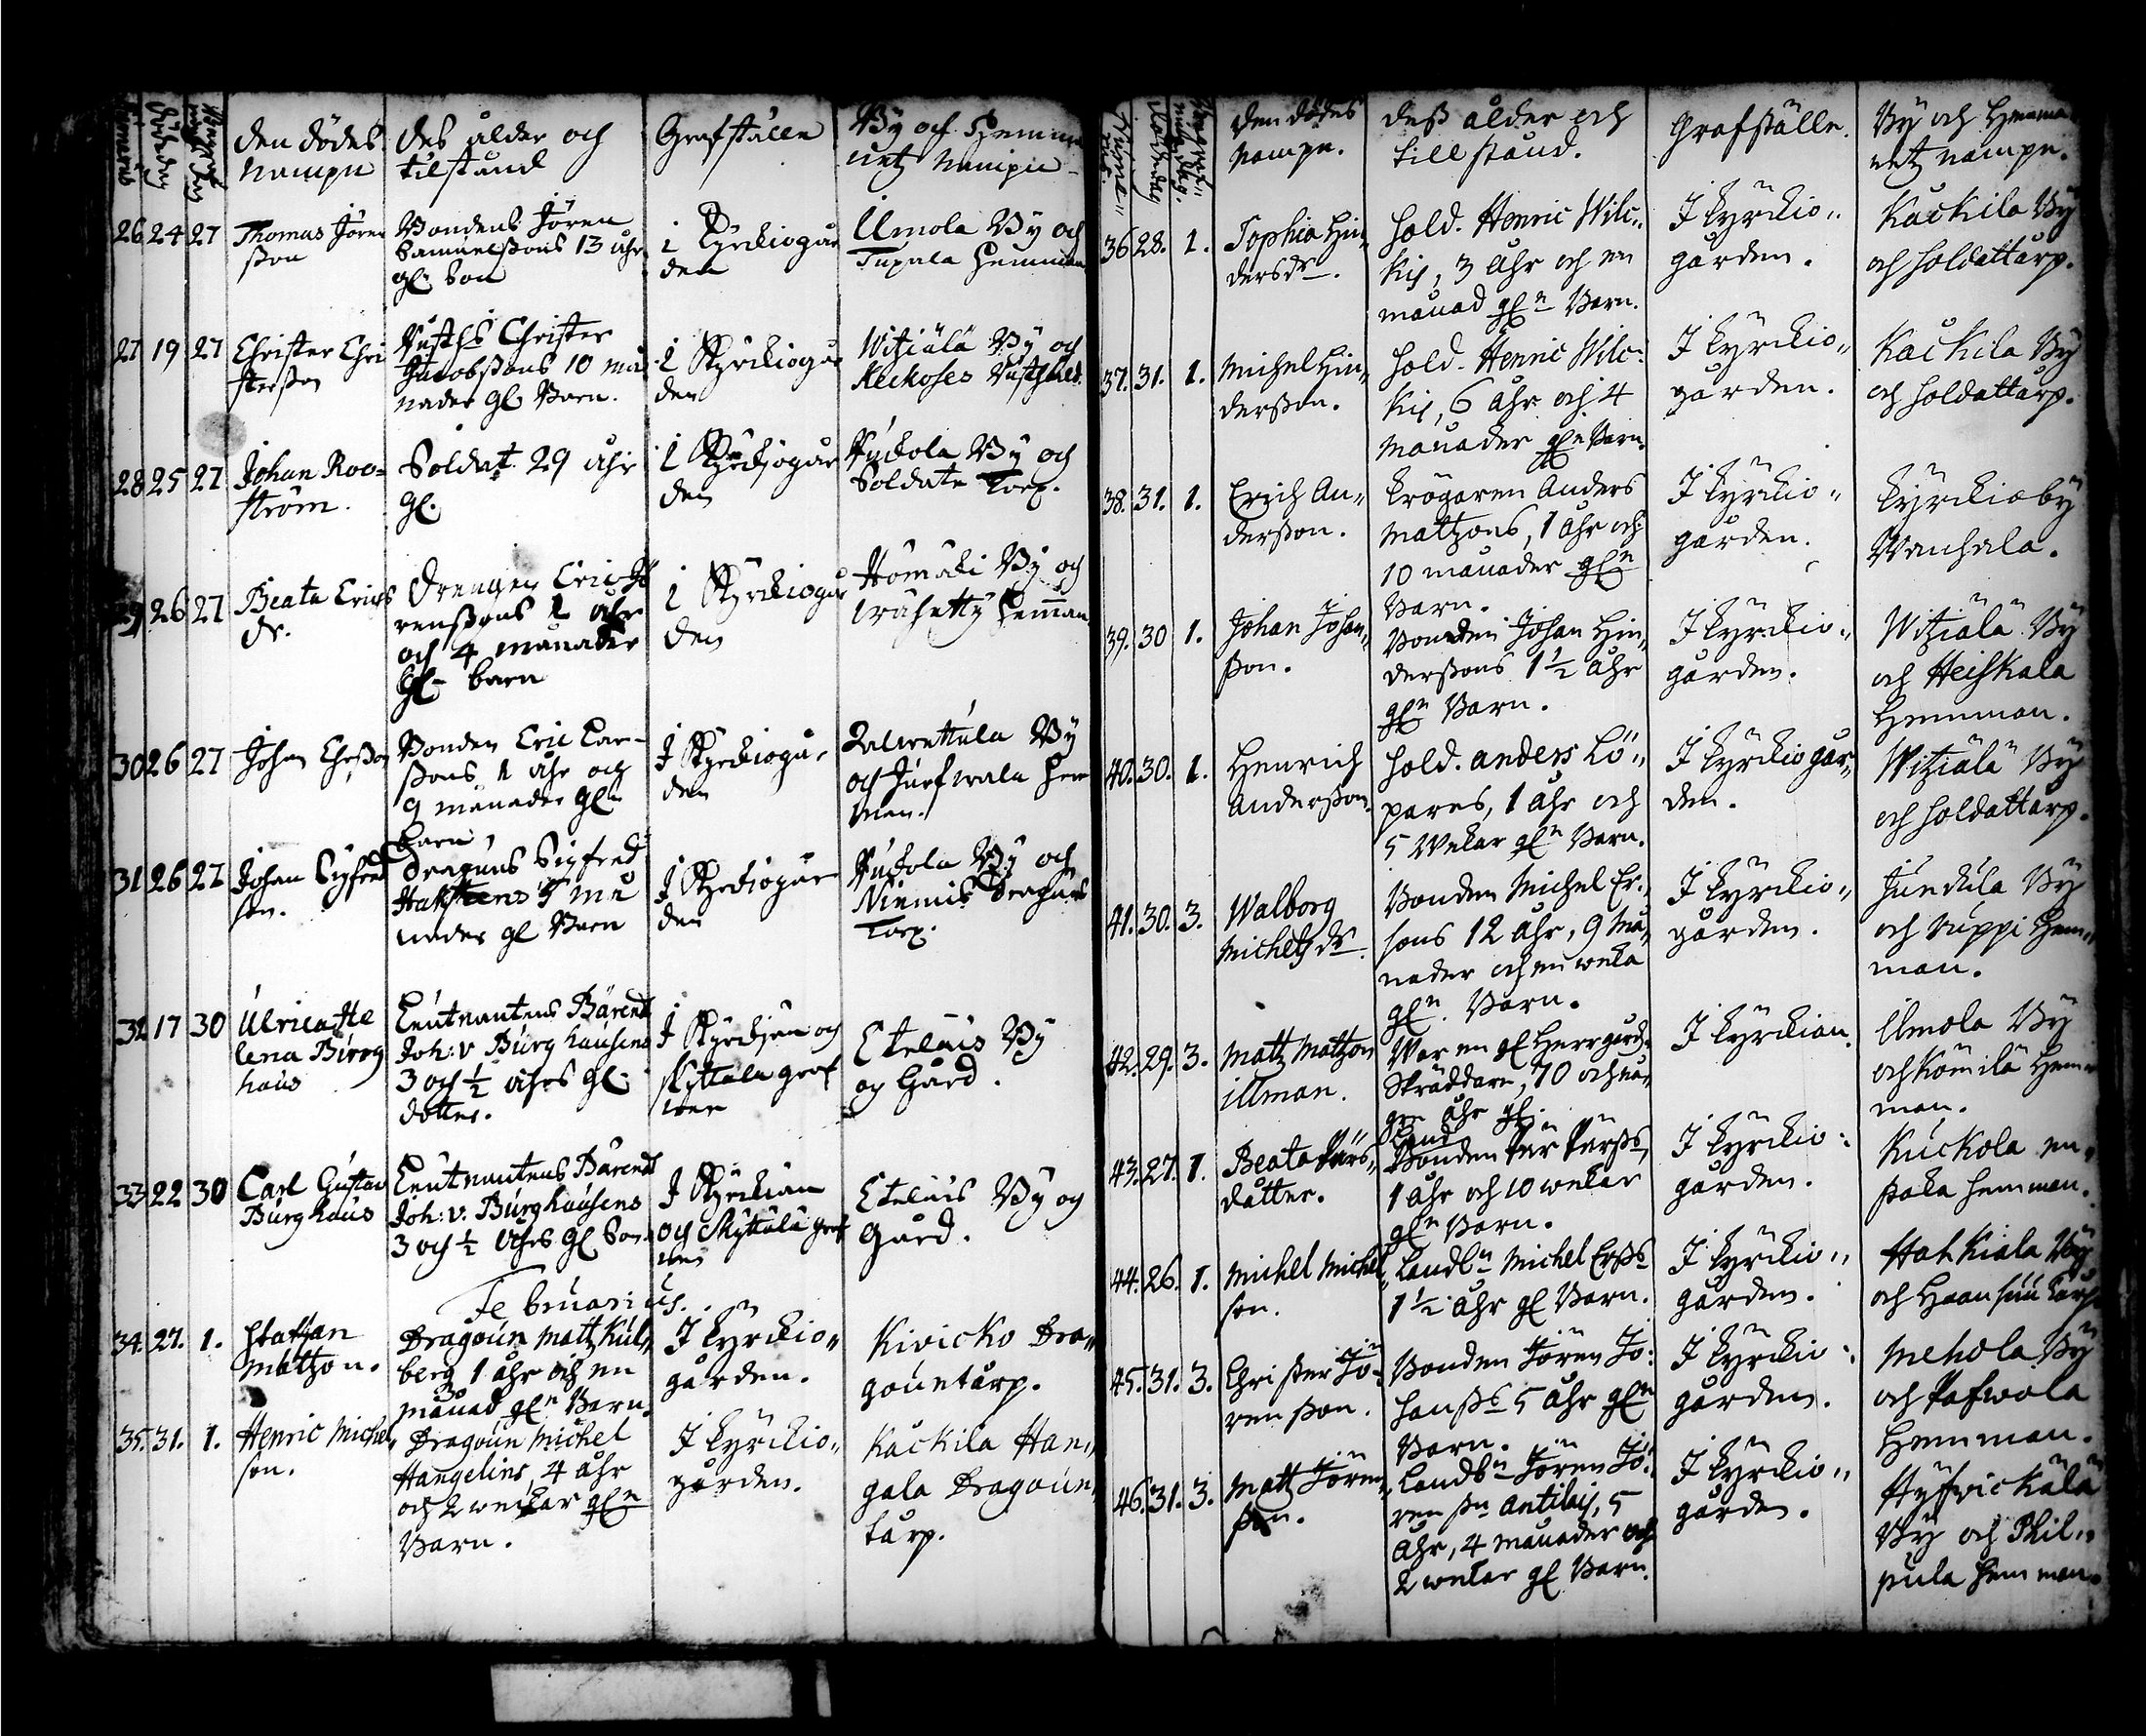 den dödes
Nampn
des ålder och
tilstånd
Grafställe
By och Hemma
netz Nampn
26 24 27
Thomas Jören
sson
Bondens Jören
Samuelssons 13 åhr
gl. Son
i Kyrkiogår
den
Ilmola By och
Tupala Hemman
27 19 27
Christer Chri
stersson
Rusths Christer
Jacobssons 10 må
nader gl Barn.
i Kyrkiogår
den
Witziälä By och
Rusthåld.
28 25 27
Johan Roo-
ström.
Soldat 29 åhr
gl.
i Kyrkiogår
den
Pückola By och
Soldate Torp.
29 26 27
Beata Erichs
dr.
Drengen Eric Jö
renssons 1 åhr
och 4 månader
gl barn
i Kyrkiogår
den
Hömäki By och
Hemman
30 26 27
Johan Ehrsson
Bonden Eric Lar-
ssons 1 åhr och
9 månader gln
barn
I Kyrkiogår
den
By
och Hem
man.
31 26 27
Johan Sigfred
son.
Draguns Sigfred
Hakstens 5 må
nader gl Barn
I Kyrkiogår
den
Pückola By och
Niemis Dragun
Torp.
32 17 30
Ulrica He
lena Burg
haus
Leutnantens Bärendt
Joh: v. Burghausens
3 och ½ åhrs gl.
dotter.
I Kyrkjan och
Skyttälä graf
wen
Eteläis By
och Gård.
33 22 30
Carl Gustav
Burghaus
Leutnantens Bärendt
Joh: v. Burghausens
3 och ½ åhrs gl Son.
I Kyrkian
och Skyttälä graf
wen
Eteläis By och
Gård.
Februarius.
34. 27. 1.
Staffan
Matzon.
Dragoun Matz Kul„
berg 1 åhr och en
månad gln Barn.
I kyrckio„
gården.
Kivicko Dra„
gountårp.
35. 31. 1.
Henric Michel„
son.
Dragoun Michel
Hangelins, 4 åhr
och 2 weckar gln
Barn.
I kyrckio„
gården.
Kackila Han„
gala Dragoun„
tårp.
den dödes
nampn.
dess ålder och
tillstånd.
Grafställe.
By och Hemma
netz nampn.
36 28. 1.
Sophia Hin„
dersdr.
Sold. Henric Wilc„
kis, 3 åhr och en
månad gln Barn.
I kyrckio„
gården.
Kackila By
och soldattårp.
37. 31. 1.
Michel Hin„
dersson.
Sold. Henric Wilc„
kis, 6 åhr och 4
månader gln Barn.
I kyrckio„
gården.
Kackila By
och soldattårp.
38. 31. 1.
Erich An„
dersson.
Krögaren Anders
Matzons, 1 åhr och
10 månader gln
Barn.
I kyrckio„
gården.
Kyrckioby
Wanhala.
39. 30 1.
Johan Johan„
sson.
Bonden Johan Hin„
derssons 1½ åhr
gln Barn.
I kyrckio„
gården.
Witziälä By
och Heiskala
Hemman.
40. 30. 1.
Henrich
Andersson.
Sold. Anders Lö„
pares, 1 åhr och
5 wekar gln Barn.
I kyrckiogår„
den.
Witziälä By
och soldattårp.
41. 30. 3.
Walborg
Michelsdr.
Bonden Michel Er„
sons 12 åhr, 9 må„
nader och en weka
gln. Barn.
I kyrckio„
gården.
Jundula By
och Ruppi Hem„
man.
42. 29. 3.
Matz Matzon
Illman.
War en gl Herrgårds
Skräddare, 70 och nå„
gre åhr gl.
I kyrckian.
Ilmola By
och Kömilä Hem
man.
43. 27. 1.
Beata Pärs„
dåtter.
Bonden Pär Pärss,
1 åhr och 10 wekar
gln Barn.
I kyrckio„
gården.
Kuckola en„
staka hemman.
44. 26. 1.
Michel Michel„
son.
Landbn Michel Erss
1½ åhr gl Barn.
I kyrckio„
gården.
Hahkiala By
och Haansuu tårp
45. 31. 3.
Christer Jö„
rensson.
Bonden Jören Jo„
hanss 5 åhr gln
Barn.
I kyrckio„
gården.
Mehola By
och Pafwola
Hemman.
46. 31. 3.
Matz Jören„
sson.
Landbn Jören Jö„
renssn Antilais, 5
åhr, 4 månader och
2 wekar gl Barn.
I kyrckio„
gården.
Hyfwickälä
By och Phil„
pula Hemman.